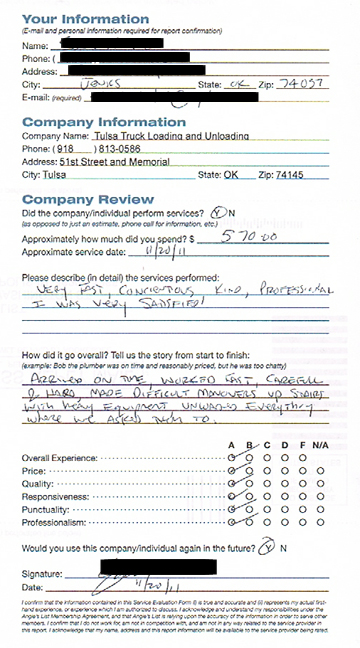 Your Information
(E-mail and personal information required for report confirmation)
Name:
Phone: (
Address:
City: Jenks State: OK Zip: 74037
E-mail: (required)
Company Information
Company Name: Tulsa Truck Loading and Unloading
Phone: (918 ) 813-0586
Address: 51st Street and Memorial
City: Tulsa State: OK Zip: 74145
Company Review
Did the company/individual perform services? Y N
(as opposed to just an estimate, phone call for information, etc.)
Approximately how much did you spend? $ 570.00
Approximate service date: 11/20/11
Please describe (in detail) the services performed:
VERY FAST, CONCIENTOUS KIND, PROFESSIONAL
I WAS VERY SATISFIED!
How did it go overall? Tell us the story from start to finish:
(example: Bob the plumber was on time and reasonably priced, but he was too chatty)
ARRIVED ON TIME, WORKED FAST, CAREFULL
& HARD, MADE DIFFICULT MANOVERS UP STAIRS
WITH HEAVY EQUIPMENT UNLOADED EVERYTHING
WHERE WE ASKED THEM TO.
A B C D F N/A
Overall Experience:
Price:
Quality:
Responsiveness:
Punctuality:
Professionalism:
Would you use this company/individual again in the future? Y N
Signature:
Date: 11/20/11
I confirm that the information contained in this Service Evaluation Form (i) is true and accurate and (ii) represents my actual first-
hand experience, or experience which I am authorized to discuss. I acknowledge and understand my responsibilities under the
Angie's List Membership Agreement, and that Angie's List is relying upon the accuracy of the information in order to serve other
members. I confirm that I do not work for, am not in competition with, and am not in any way related to the service provider in
this report. I acknowledge that my name, address and this report information will be available to the service provider being rated.